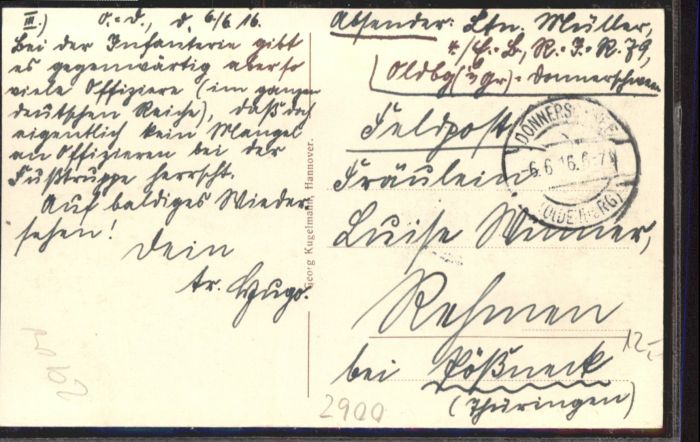 III.) O.-D., d. 6/6.16.
Bei der Infanterie gibt
es gegenwärtig aber so
viele Offiziere (im ganzen
deutschen Reiche), daß doch
eigentlich kein Mangel
an Offizieren bei der
Fußtruppe herrscht.
Auf baldiges Wieder-
sehen!
Dein
tr. Hugo.
Georg Kugelmann, Hannover.
Absender: Ltn. Müller,
R.-I.-R. 79,
Oldbg (i/Gr)-Donnerschwee
Feldpost
Fräulein
Luise Wimmer,
Rehmen
bei Pößneck
(Thüringen)
DONNERSCHWEE
6.6.16.6-7N
(OLDENBURG)
12,-
2900